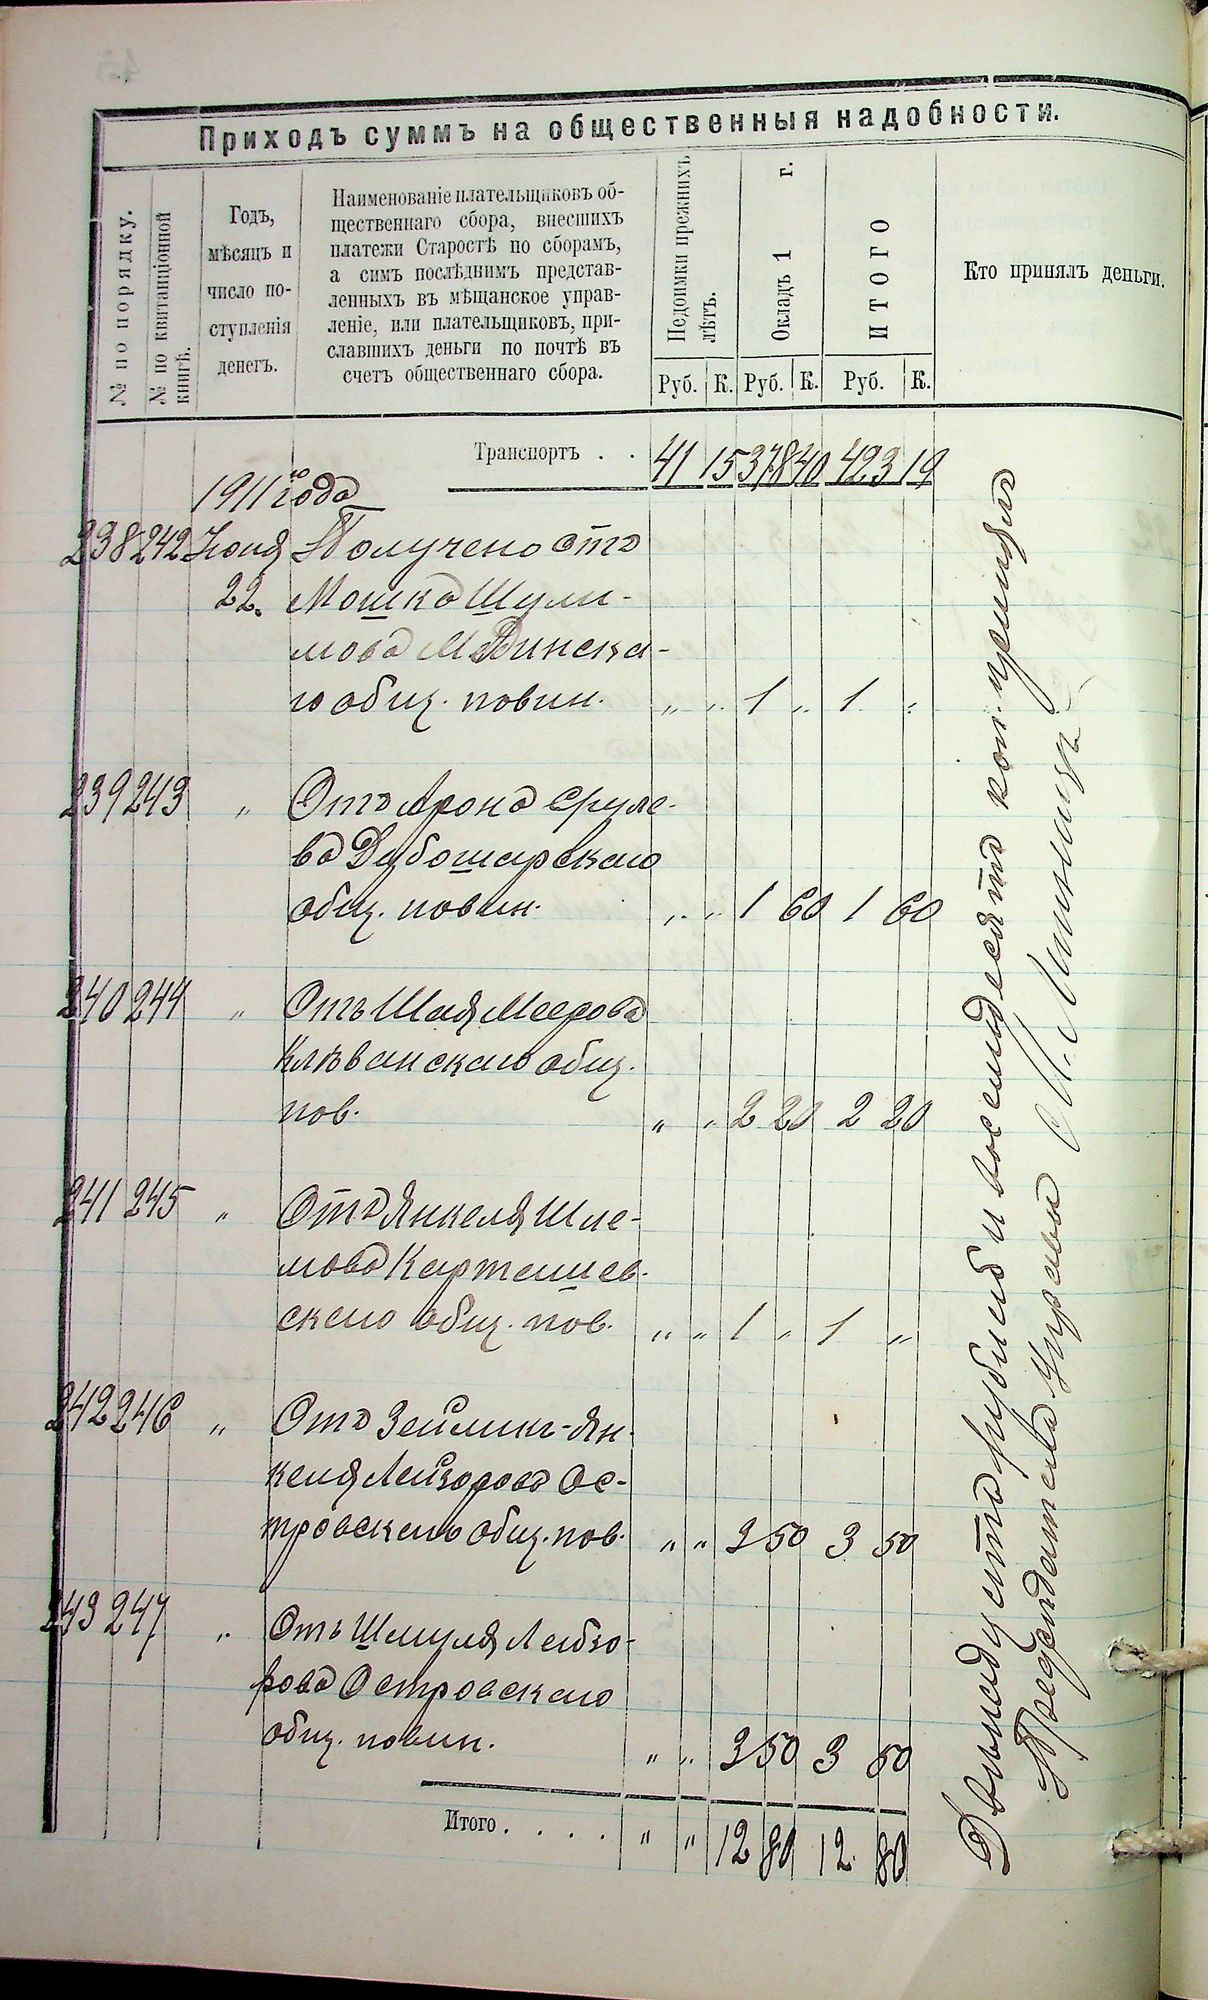 Приходъ суммъ на общественныя надобности.
№ по порядку.
№ по квитанціонной
книгѣ.
Годъ,
мѣсяцъ и
число по-
ступленія
денегъ.
Наименованіе плательщиковъ об-
щественнаго сбора, внесшихъ
платежи Старостѣ по сборамъ,
а симъ послѣднимъ представ-
ленныхъ въ мѣщанское управ-
леніе, или плательщиковъ, при-
славшихъ деньги по почтѣ въ
счетъ общественнаго сбора.
Недоимки прежнихъ
лѣтъ.
Окладъ 1 г.
ИТОГО
Кто принялъ деньги.
Руб. К. Руб. К. Руб. К.
Транспортъ . . 41 15 378 40 423 19
1911го года
238 242 Іюня Получено отъ
22. Мошка Шули-
мова Мединска-
го общ. повин. „ „ 1 „ 1 „
239 243 „ Отъ Арона Сруле-
ва Дубошарскаго
общ. повин. „ „ 1 60 1 60
240 244 „ Отъ Шая Меерова
Клѣванскаго общ.
пов. „ „ 2 20 2 20
241 245 „ Отъ Янкеля Шле-
мова Карташев-
скаго общ. пов. „ „ 1 „ 1 „
242 246 „ Отъ Зейликъ-Ян-
келя Лейзорова Ос-
тровскаго общ. пов. „ „ 3 50 3 50
243 247 „ Отъ Шмуля Лейзо-
рова Островскаго
общ. повин. „ „ 3 50 3 50
Итого. . . . „ „ 12 80 12 80
Двѣнадцать рублей и восемьдесятъ коп. принялъ
Предсѣдатель Управы